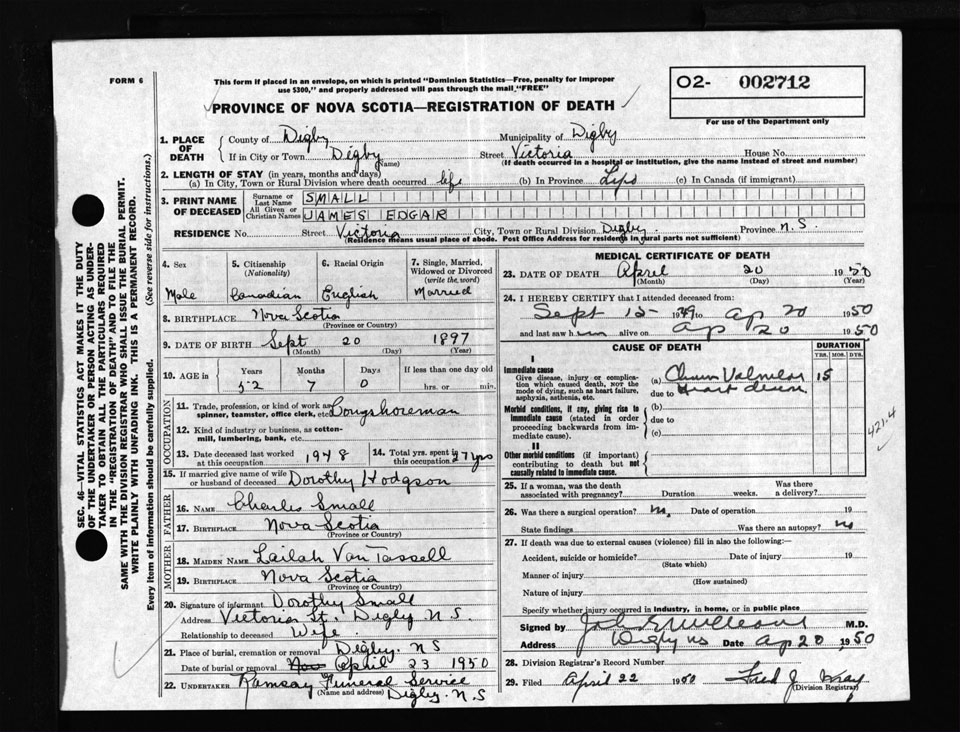 FORM 6
This form if placed in an envelope, on which is printed "Dominion Statistics—Free, penalty for improper
use $300," and properly addressed will pass through the mail "FREE"
O2- 002712
For use of the Department only
PROVINCE OF NOVA SCOTIA—REGISTRATION OF DEATH
1. PLACE OF DEATH
County of Digby
Municipality of Digby
If in City or Town Digby (Name)
Street Victoria House No.
(If death occurred in a hospital or institution, give the name instead of street and number)
2. LENGTH OF STAY (in years, months and days)
(a) In City, Town or Rural Division where death occurred life (b) In Province (c) In Canada (if immigrant)
3. PRINT NAME OF DECEASED
Surname or Last Name SMALL
All Given or Christian Names JAMES EDGAR
RESIDENCE No. Street Victoria City, Town or Rural Division Digby Province N.S.
(Residence means usual place of abode. Post Office Address for residents in rural parts not sufficient)
4. Sex
Male
5. Citizenship (Nationality)
Canadian
6. Racial Origin
English
7. Single, Married, Widowed or Divorced (write the word)
Married
8. BIRTHPLACE Nova Scotia
(Province or Country)
9. DATE OF BIRTH Sept 20 1897
(Month) (Day) (Year)
10. AGE in Years Months Days If less than one day old
52 7 0 hrs. or min.
OCCUPATION
11. Trade, profession, or kind of work as spinner, teamster, office clerk, etc. Longshoreman
12. Kind of industry or business, as cotton-mill, lumbering, bank, etc.
13. Date deceased last worked at this occupation 1948
14. Total yrs. spent in this occupation 27 yrs
15. If married give name of wife or husband of deceased Dorothy Hodgson
FATHER
16. Name Charles Small
17. Birthplace Nova Scotia
(Province or Country)
MOTHER
18. Maiden Name Lailah Van Tassell
19. Birthplace Nova Scotia
(Province or Country)
20. Signature of informant Dorothy Small
Address Victoria St. Digby N.S.
Relationship to deceased Wife
21. Place of burial, cremation or removal Digby. N S
Date of burial or removal April 23 1950
22. UNDERTAKER Ramsay Funeral Service
(Name and address) Digby. N.S
MEDICAL CERTIFICATE OF DEATH
23. DATE OF DEATH April 20 1950
(Month) (Day) (Year)
24. I HEREBY CERTIFY that I attended deceased from:
Sept 15 1949 to Ap 20 1950
and last saw him alive on Ap 20 1950
CAUSE OF DEATH
DURATION
YRS. MOS. DYS.
I
Immediate cause
Give disease, injury or complication which caused death, NOT the mode of dying, such as heart failure, asphyxia, asthenia, etc.
(a) Valvular 15
due to Heart
Morbid conditions, if any, giving rise to immediate cause (stated in order proceeding backwards from immediate cause).
(b)
due to
(c)
II
Other morbid conditions (if important) contributing to death but not causally related to immediate cause.
421.4
25. If a woman, was the death associated with pregnancy? Duration weeks. Was there a delivery?
26. Was there a surgical operation? No. Date of operation 19
State findings Was there an autopsy? No
27. If death was due to external causes (violence) fill in also the following:—
Accident, suicide or homicide? Date of injury 19
(State which)
Manner of injury
(How sustained)
Nature of injury
Specify whether injury occurred in industry, in home, or in public place
Signed by M.D.
Address Digby NS Date Ap 20 1950
28. Division Registrar's Record Number
29. Filed April 22 1950 Fred J.
(Division Registrar)
SEC. 46—VITAL STATISTICS ACT MAKES IT THE DUTY
OF THE UNDERTAKER OR PERSON ACTING AS UNDER-
TAKER TO OBTAIN ALL THE PARTICULARS REQUIRED
IN THE "REGISTRATION OF DEATH" AND TO FILE THE
SAME WITH THE DIVISION REGISTRAR WHO SHALL ISSUE THE BURIAL PERMIT.
WRITE PLAINLY WITH UNFADING INK. THIS IS A PERMANENT RECORD.
Every item of information should be carefully supplied. (See reverse side for instructions.)